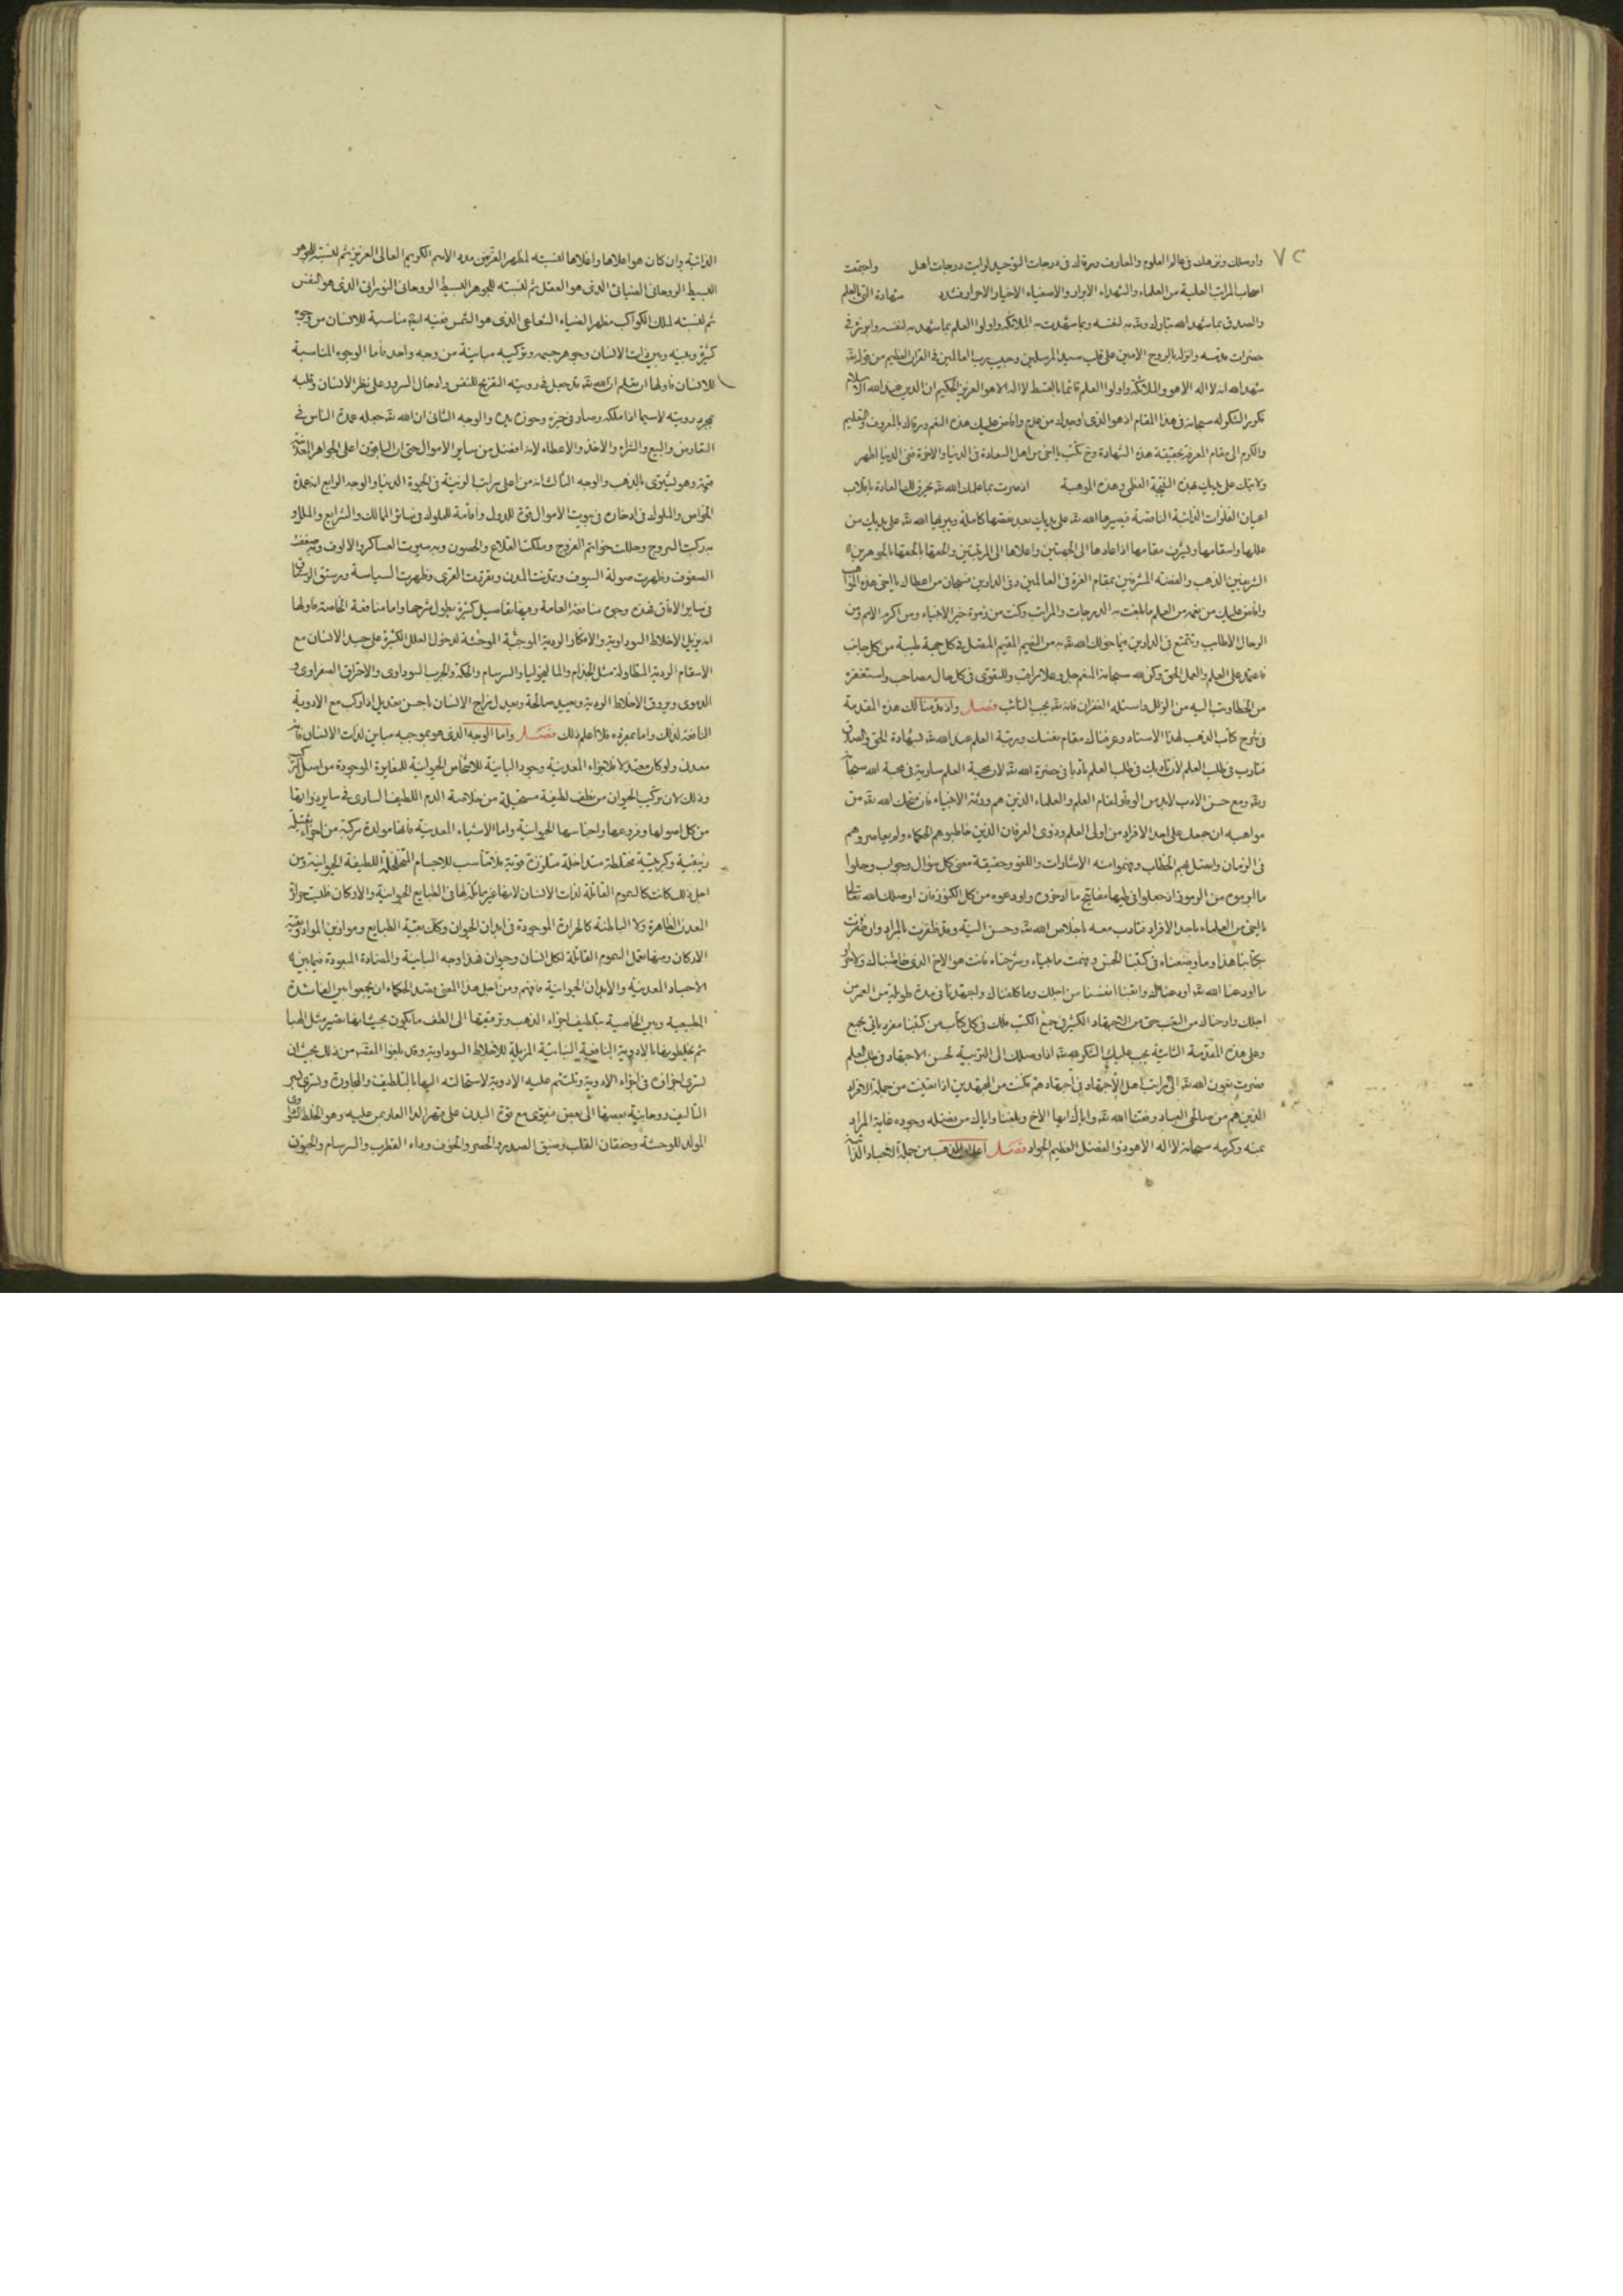 ٧٢
واوصلك ونزهك في عالم العلوم والمعارف ورقاك في درجات التوحيد لرايت درجات اهل واجتمعت
اصحاب المراتب العلية من العلماء والشهداء الابرار والاصفياء الاخيار والاحرار شهادة العلم
والصدق بما شهد الله تبارك وتعالى به لنفسه وبما شهدت به الملائكة واولوا العلم بما شهد به لنفسه
حضرات قدسه وانزله بالروح الامين على قلب سيد المرسلين وحبيب رب العالمين في القران العظيم من قوله تعالى
شهد الله انه لا اله الا هو والملائكة واولوا العلم قائما بالقسط لا اله الا هو العزيز الحكيم ان الدين عند الله الاسلام
الشكر له سبحانه في هذا المقام اذ هو الذي اوجدك من عدم وافاض عليك هذه النعم ورقاك بالمعروف والتعليم
والكرم الى مقام المعرفة بحقيقة هذه الشهادة يا اخي من اهل السعادة في الدنيا والاخرة ففي الدنيا اظهر
على يديك هذه النتيجة العظمى وهذه الموهبة اذ صرت بما علمك الله تعالى تخرق تلك العادة بانقلاب
اعيان الفلزات الذائبة الناقصة فيصيرها الله تعالى على يديك بعد نقصها كاملة ويبريها الله تعالى على يديك من
عللها واسقامها ويشرف مقامها اذا عادها الى الجهتين واعلاها الى المرتبتين والحقها بالجوهرين
الشريفين الذهب والفضة المشرفين بمقام العزة في العالمين وفي الدارين فسبحان من اعطاك يا اخي هذه المواهب
وافاض عليك من نعمه من العلم ما بلغت به الدرجات والمراتب وكنت من زمرة خير الاخيار ومن اكرم الامم ومن
الرجال الاطايب وتتمتع في الدارين بما خولك الله تعالى به من النعيم المقيم المتصل في كل جهة طيبة من كل جانب
فاعتمد على العلم والعمل الحق وكن لله سبحانه المنعم جل وعلا مراقب وللتقوى في كل حال مصاحب واستغفره
من الخطا وتب اليه من الزلل واسئله الغفران فانه تعالى يحب التائب فصل واذ قد قدمنا لك هذه المقدمة
في شرح كتاب الذهب لهذا الاستاد وعرفناك مقام نفسك ورتبة العلم عند الله تعالى بشهادة الحق والصدق
فتادب في طلب العلم لان تاديبك في طلب العلم تادبا في حضرة الله تعالى لان محبة العلم سارية في محبة الله سبحانه
وتعالى ومع حسن الادب لا بد من الوفاء لمقام العلم والعلماء الذين هم ورثة الانبياء فان منحك الله تعالى من
مواهبه ان جعل على احد الافراد من اولى العلم وذوى العرفان الذين خاطبوهم الحكماء ولم يعاصروهم
في الزمان واتصل بهم الخطاب وفهموا منه الاشارات واللغز وحقيقة معنى كل سؤال وجواب وحلوا
ما ابرموه من الرموز اذ جعلوا في طيها مفاتيح ما ادخروه واودعوه من كل الكنوز فان اوصلك الله تعالى
يا اخي من العلماء باحد الافراد فتادب معه باخلاص لله تعالى وحسن النية وقد ظفرت بالمراد وان ظفرت
بكتابنا هذا وما وضعناه في كتبنا الحسن وفهمت ما هيأناه وشرحناه فانت هو الاخ الذي خاطبناك
ما اودعنا الله تعالى اودعناك واتعبنا انفسنا من اجلك وما كلفناك واجتهدنا في مدة طويلة من العمر من
اجلك وارحناك من التعب حتى من الاجتهاد الكثير في جمع الكتب فلك في كل كتاب من كتبنا مفرد باقي يجمع
وعلى هذه المقدمة الثانية يجب عليك الشكر لله تعالى اذ اوصلك الى التربية لحسن الاجتهاد في طلب العلم
فصرت بعون الله تعالى الى مراتب اهل الاجتهاد في اجتهادهم فكنت من المجتهدين اذا بقيت من جملة الافراد
الذين هم من صالحي العباد وفقنا الله تعالى واياك ايها الاخ وبلغنا واياك من فضله وجوده غاية المراد
بمنه وكرمه سبحانه لا اله الا هو ذوا الفضل العظيم الجواد فصل اعلم ان الذهب من جملة الاجساد الذائبة
الذائبة وان كان هو اعلاها واغلاها لنسبته لمظهر العز من مدد الاسم الكريم العالي العزيز ثم لنسبته للجوهر
البسيط الروحاني الضيائي الذي هو العقل ثم لنسبته للجوهر البسيط الروحاني النوراني الذي هو النفس
ثم لنسبته لملك الكواكب مظهر الضياء الشعاعي الذي هو الشمس ففيه اتم مناسبة للانسان من وجوه
كثيرة وبينه وبين ذات الانسان وجوهر جسمه وتركيبه مباينة من وجه واحد فاما الوجوه المناسبة
للانسان فاولها ان تعلم ان الله تعالى قد جعل في رويته التفريح للنفس وادخال السرور على نظر الانسان وقلبه
بمجرد رويته لاسيما اذا ملكه وصار في حيزه وحوزة يده والوجه الثاني ان الله تعالى جعله عمدة الناس في
التقاوض والبيع والشراء والاخذ والاعطاء لانه افضل من ساير الاموال حتى ان الياقوت اعلى الجواهر المعدنية
قيمة وهو يشترى بالذهب والوجه الثالث انه من اعلى مراتب الزينة في الحيوة الدنيا والوجه الرابع انه عمدة
الخواص والملوك في ادخاره في بيوت الاموال قوة للدول واقامة للملوك في ساير الممالك والشرايع والملل و
به ركبت السروج وحللت خواتم الفروج وملكت القلاع والحصون وبه سيرت العساكر والالوف وبه صففت
الصفوف وظهرت صولة السيوف وتمدنت المدن وتقرت القرى وظهرت السياسة
في ساير الافاق فهذه وجوه منافعه العامة وفيها تفاصيل كثيرة يطول شرحها واما منافعه الخاصة فاولها
انه يزيل الاخلاط السوداوية والافكار الردية الموجبة الموحشة لدخول العلل الكثيرة على جسد الانسان مع
الاسقام الردية المتطاولة مثل الجذام والماليخوليا والسرسام والحكة والجرب السوداوى والاحتراق الصفراوى و
الدموى ويروق الاخلاط الردية ويعيد صالحة ويعدل مزاج الانسان باحسن تعديل اذا ركب مع الادوية
النافعة لذلك واما بمفرده فلا فاعلم ذلك فصل واما الوجه الذي هو بموجبه مباين لذات الانسان فانه
معدني ولو كان معتدلا فلاجزاء المعدنية وجود المباينة للاشخاص الحيوانية للمغايرة الموجودة من اصل التركيب
وذلك لان تركيب الحيوان من نطف لطيفة مستحيلة من خلاصة الدم اللطيف السارى في ساير ذواتها
من كل اصولها وفروعها واجناسها الحيوانية واما الاشياء المعدنية فانها مولدة مركبة من اجزاء ثقيلة
زيبقية وكبريتية مختلطة متداخلة متلززة قوية فلا تناسب للاجسام المتخلخلة اللطيفة الحيوانية ومن
اجل ذلك كانت كالسموم القاتلة لذات الانسان لانها غير مماثلة لها في الطبايع الحيوانية والاركان فليست حرارة
المعدن الظاهرة ولا الباطنة كالحرارة الموجودة في ابدان الحيوان وكذلك بقية الطبايع وموازين المواد وبقية
الاركان ومنها تعمل السموم القاتلة لكل انسان وحيوان فهذا وجه المباينة والمضادة الموجودة فيما بين
الاجساد المعدنية والابدان الحيوانية فافهم ومن اجل هذا المعنى قصد الحكماء ان يجمعوا بين الفائدة
الطبيعية وبين الخاصية بتلطيف اجزاء الذهب وترقيقها الى الطف ما يكون بحيث انها تصير مثل الهبا
ثم يخلطونها بالادوية النافعة النباتية المزيلة للاخلاط السوداوية وقد بلغوا القصد من ذلك بحيث ان
تسري اجزاؤه في اجزاء الادوية وتلتئم عليه الادوية لاستحالته اليها بالتلطيف والمجاورة وتسرى بسر
التاليف روحانية بعضها الى بعض فيقوى مع قوة البدن على قهر الدا العارض عليه وهو الخلط السوداوى
المولد للوحشة وخفقان القلب وضيق الصدر والحصر والخوف وداء القطرب والسرسام والجنون